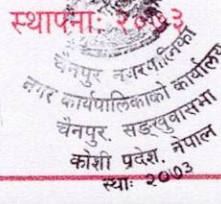 स्थापना: २०७३
चैनपुर नगरपालिका
नगर कार्यपालिकाको कार्यालय
चैनपुर, सङखुवासभा
कोशी प्रदेश, नेपाल
स्था: २०७३